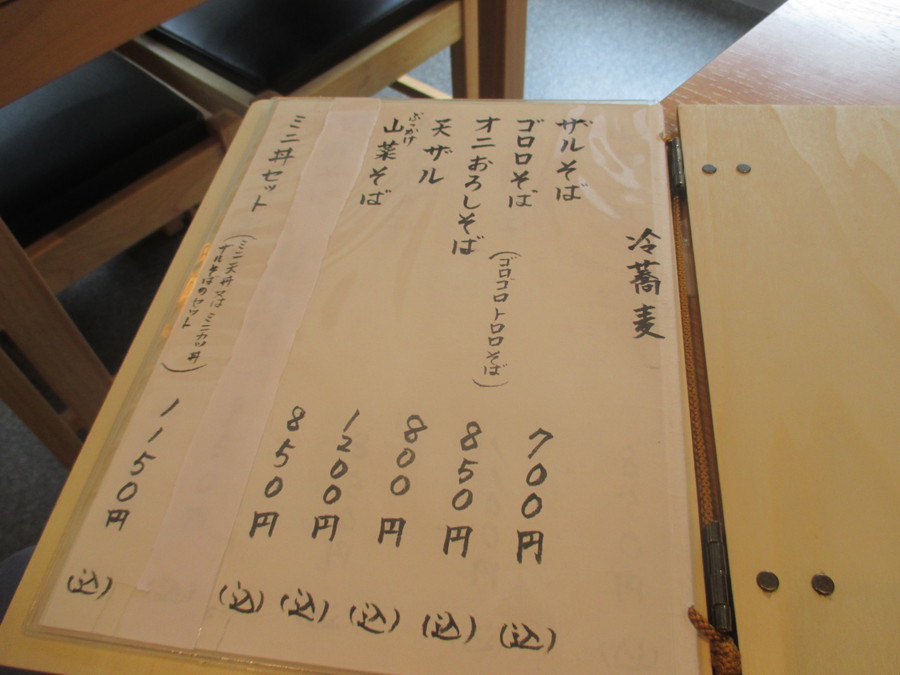 冷蕎麦
ザルそば 700円 (込)
ゴロロそば (ゴロゴロトロロそば) 850円 (込)
オニおろしそば 800円 (込)
天ザル 1200円 (込)
ぶっかけ
山菜そば 850円 (込)
ミニ丼セット (ミニ天丼又はミニカツ丼 ザルそばのセット) 1150円 (込)